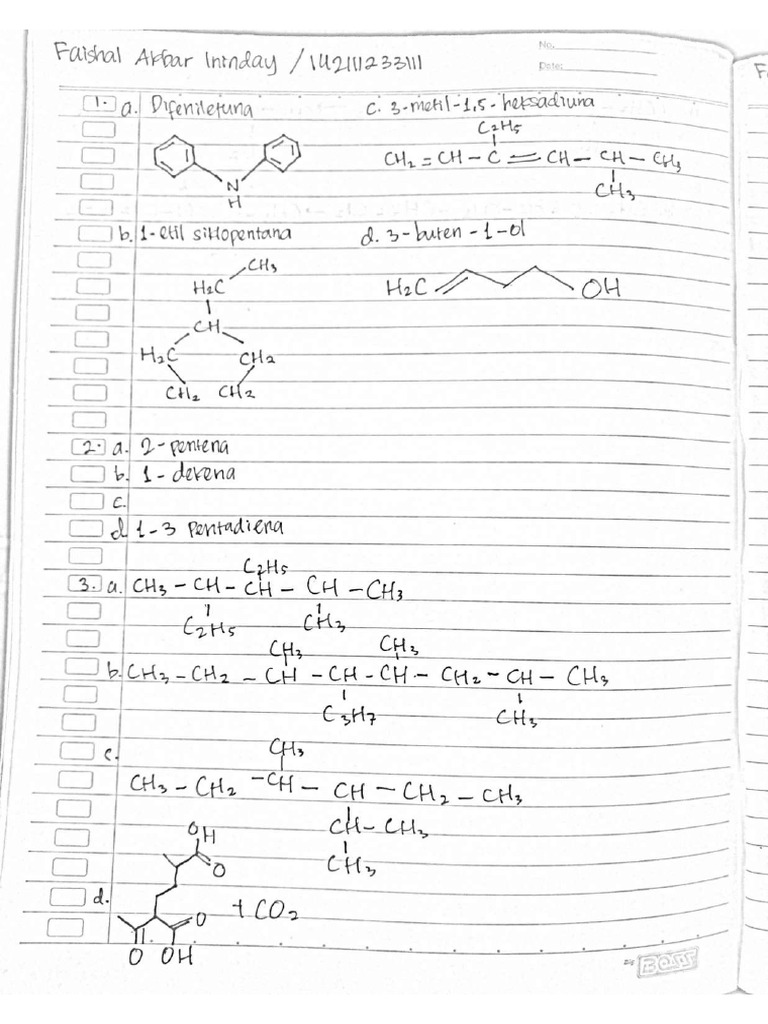 Faishal Akbar Ininday / 142111233111
No.
Date:
1. a. Difeniletuna c. 3-metil-1,5-heksadiuna
C2H5
CH2 = CH – C = CH – CH – CH3
CH3
N
H
b. 1-etil siklopentana d. 3-buten-1-ol
CH3
H2C
H2C OH
CH
H2C CH2
CH2 CH2
2. a. 2-pentena
b. 1-dekena
c.
d. 1-3 pentadiena
C2H5
3. a. CH3 – CH – CH – CH – CH3
C2H5 CH3
CH3 CH3
b. CH3 – CH2 – CH – CH – CH – CH2 – CH – CH3
C3H7 CH3
c. CH3
CH3 – CH2 – CH – CH – CH2 – CH3
CH – CH3
CH3
OH
O
d. O + CO2
O OH
BOSS
F